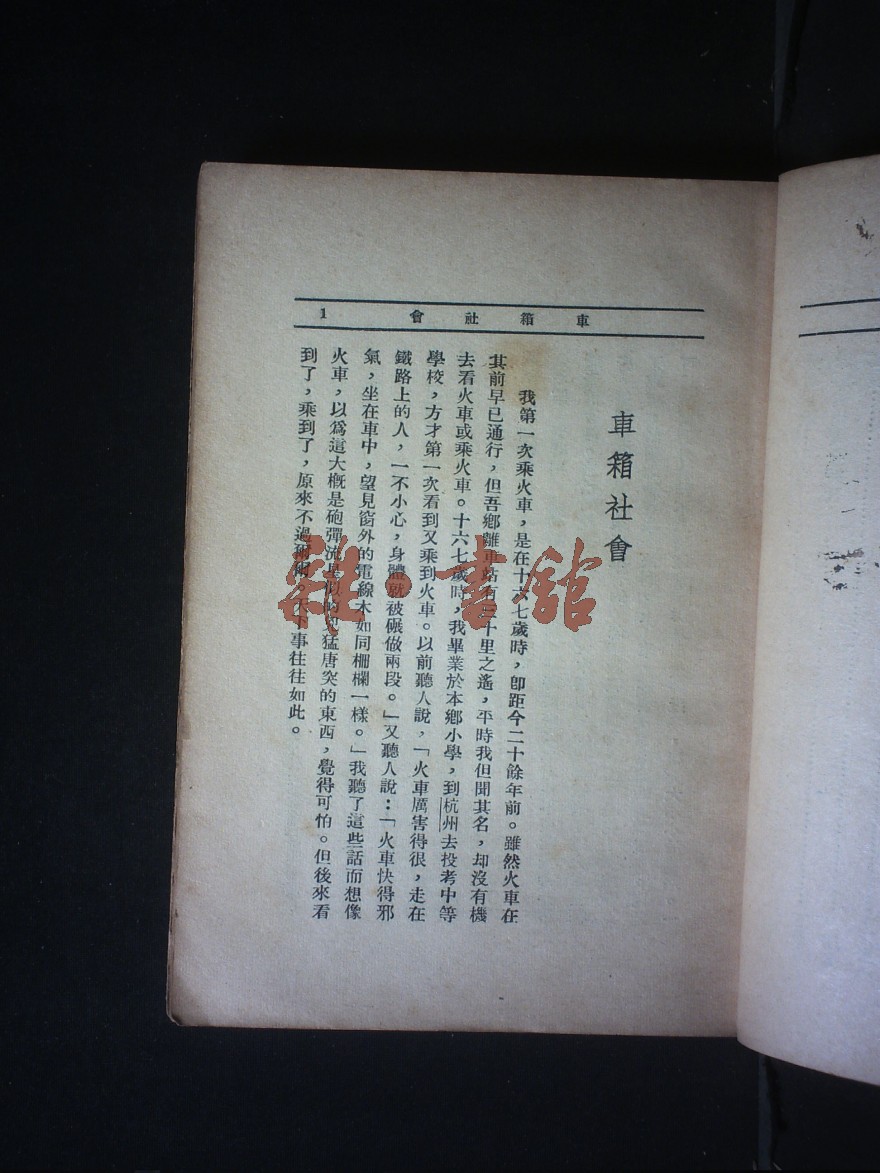 車箱社會 1
車箱社會
我第一次乘火車，是在十六七歲時，卽距今二十餘年前。雖然火車在
其前早已通行，但吾鄉離車站有三十里之遙，平時我但聞其名，却沒有機
去看火車或乘火車。十六七歲時，我畢業於本鄉小學，到杭州去投考中等
學校，方才第一次看到又乘到火車。以前聽人說，「火車厲害得很，走在
鐵路上的人，一不小心，身體就被碾做兩段。」又聽人說：「火車快得邪
氣，坐在車中，望見窗外的電線木如同柵欄一樣。」我聽了這些話而想像
火車，以爲這大槪是砲彈流星似的凶猛唐突的東西，覺得可怕。但後來看
到了，乘到了，原來不過爾爾。天下事往往如此。
雜·書館